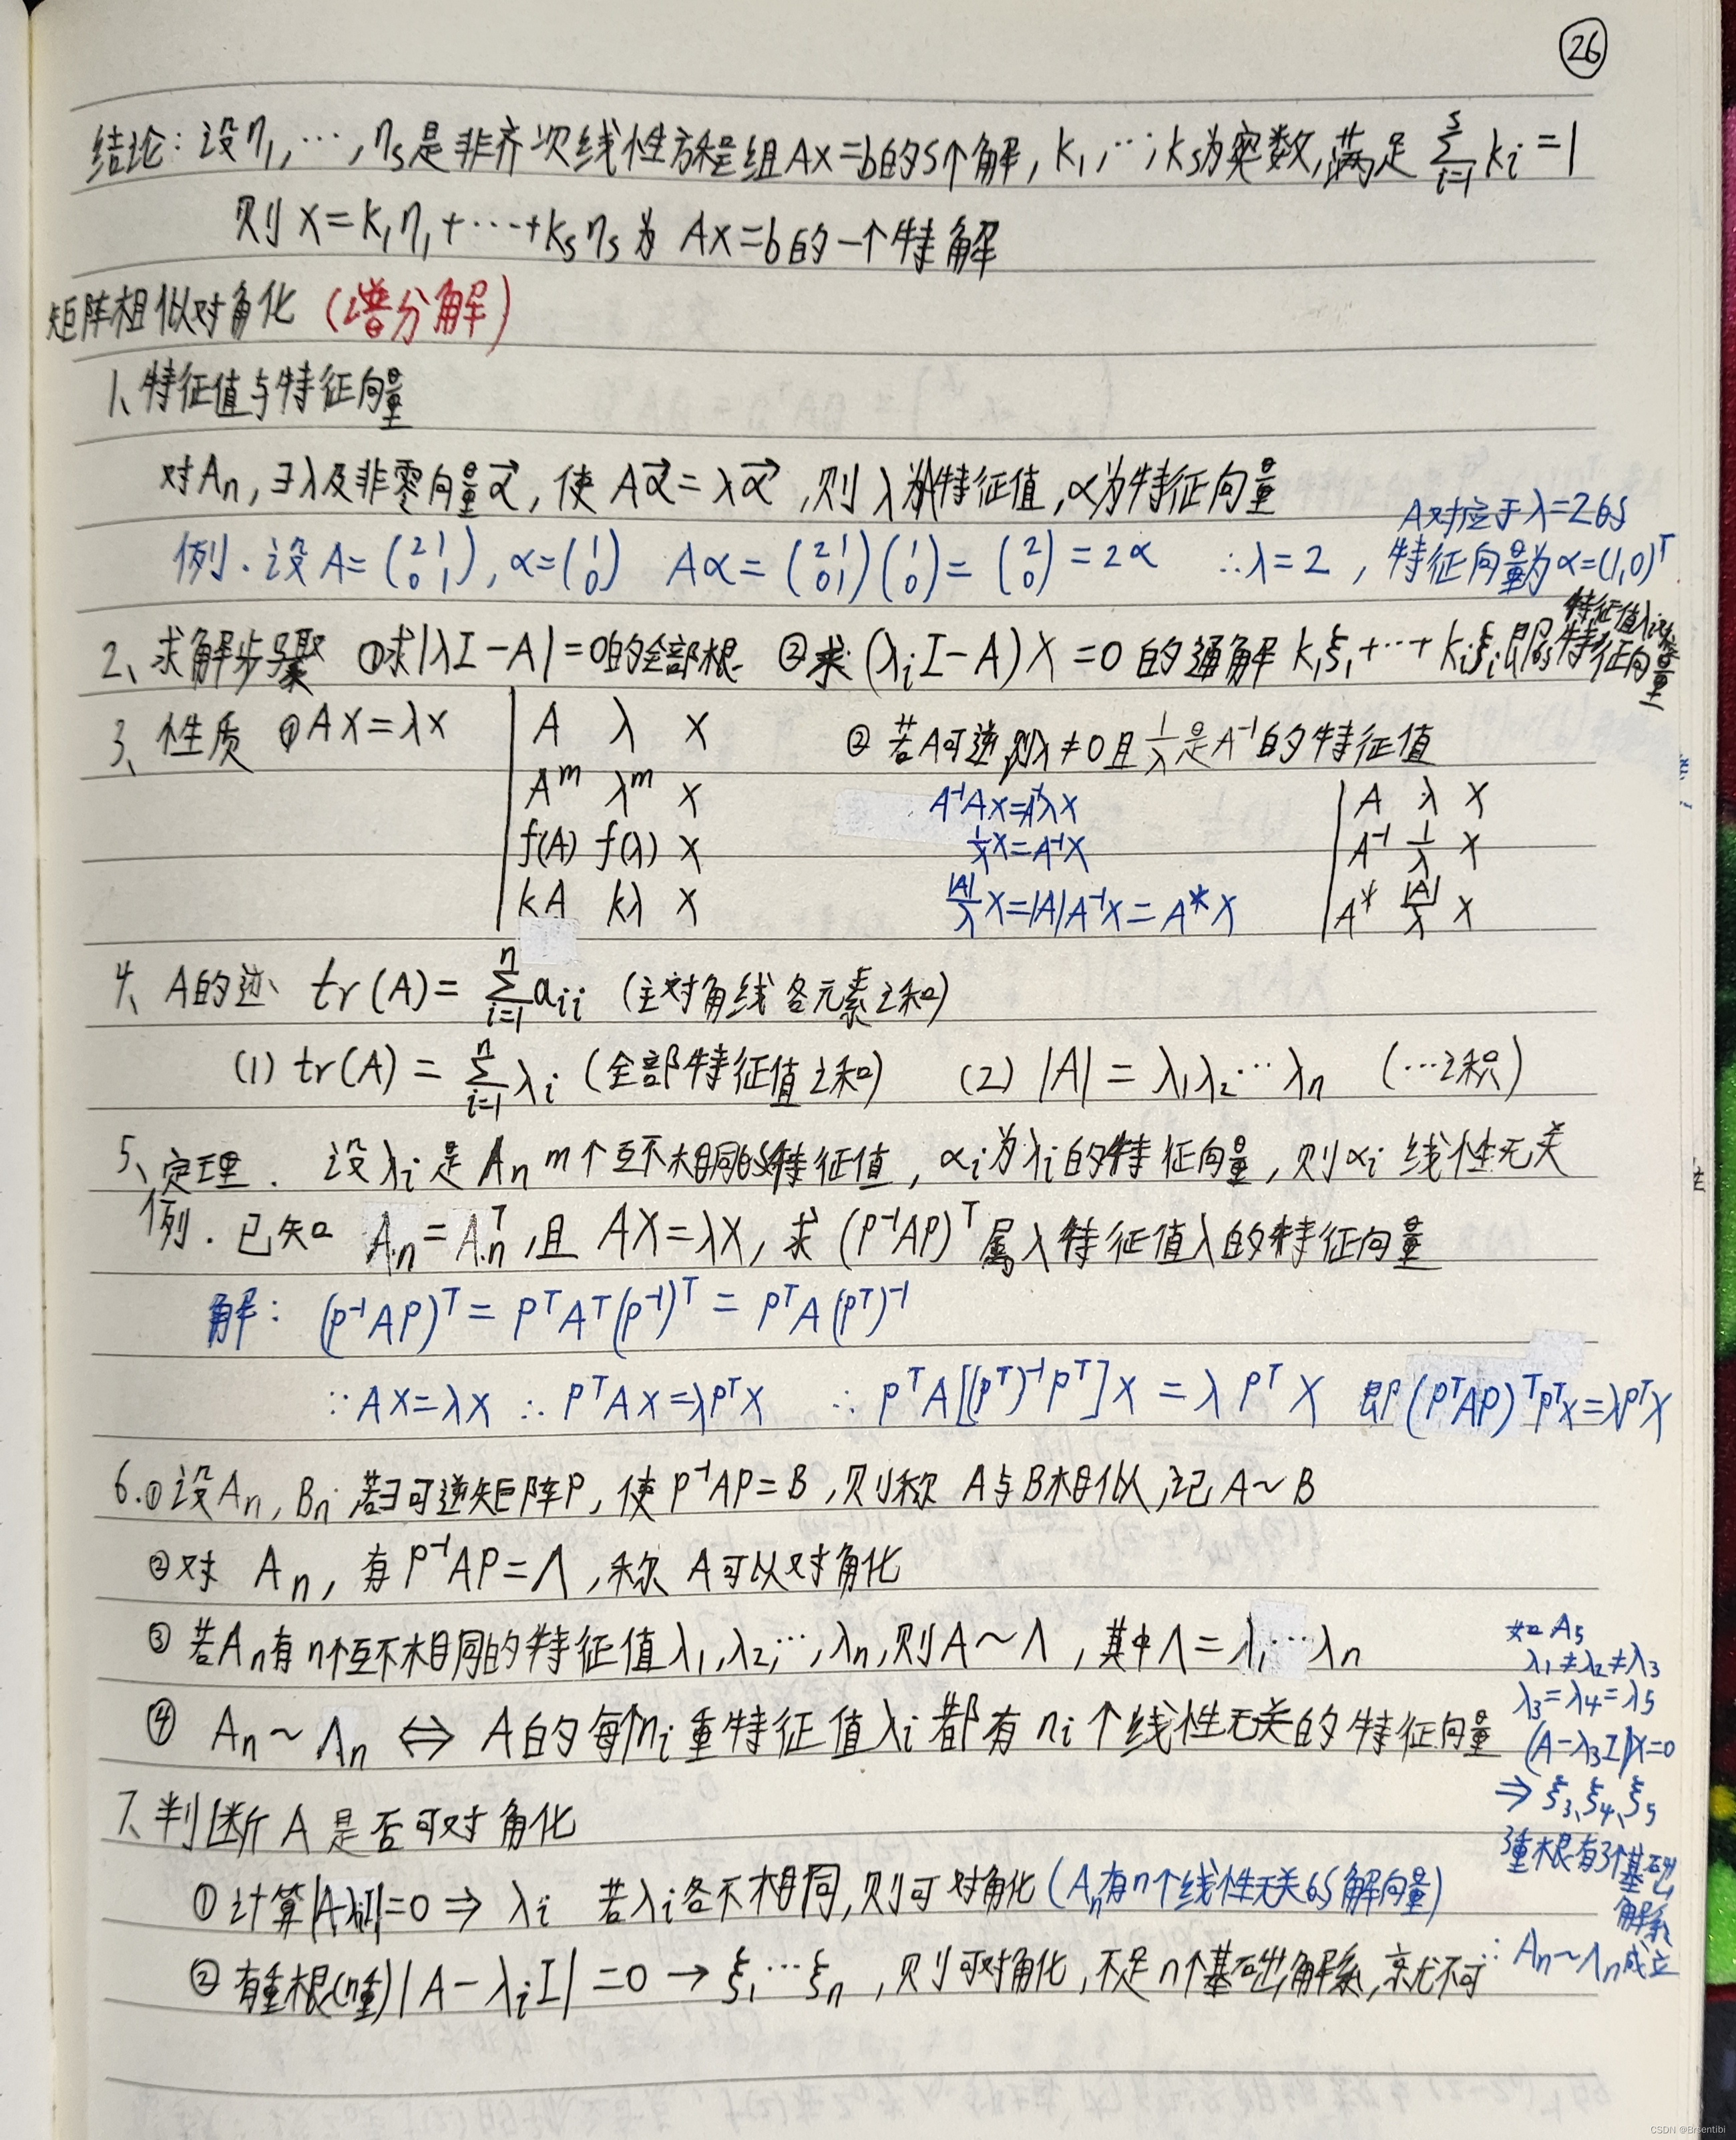 26
结论：设η₁,…,ηₛ是非齐次线性方程组AX=b的s个解, k₁,…,kₛ为实数, 满足 Σᵢ₌₁ˢ kᵢ=1
则 X=k₁η₁+…+kₛηₛ 为 AX=b的一个特解
矩阵相似对角化（谱分解）
1、特征值与特征向量
对Aₙ, ∃λ及非零向量α⃗, 使 Aα⃗=λα⃗, 则 λ为特征值, α为特征向量
例. 设A=(2 1; 0 1), α=(1; 0) Aα=(2 1; 0 1)(1; 0)=(2; 0)=2α ∴λ=2,
A对应于λ=2的
特征向量为α=(1,0)ᵀ
2、求解步骤 ①求|λI-A|=0的全部根 ②求(λᵢI-A)X=0的通解 k₁ξ₁+…+kᵢξᵢ即为特征向量
特征值λᵢ
3、性质 ①AX=λX | A λ X ②若A可逆则λ≠0且1/λ是A⁻¹的特征值
Aᵐ λᵐ X A⁻¹AX=A⁻¹λX | A λ X
f(A) f(λ) X 1/λ X=A⁻¹X A⁻¹ 1/λ X
kA kλ X |A|/λ X=|A|A⁻¹X=A*X A* |A|/λ X
4、A的迹 tr(A)=Σᵢ₌₁ⁿ aᵢᵢ (主对角线各元素之和)
(1) tr(A)=Σᵢ₌₁ⁿ λᵢ (全部特征值之和) (2) |A|=λ₁λ₂…λₙ (…之积)
5、定理. 设λᵢ是Aₙ m个互不相同的特征值, αᵢ为λᵢ的特征向量, 则αᵢ线性无关
例. 已知 Aₙ=Aₙᵀ, 且 AX=λX, 求 (P⁻¹AP)ᵀ属入特征值λ的特征向量
解: (P⁻¹AP)ᵀ=PᵀAᵀ(P⁻¹)ᵀ=PᵀA(Pᵀ)⁻¹
∵AX=λX ∴PᵀAX=λPᵀX ∴PᵀA[(Pᵀ)⁻¹Pᵀ]X=λPᵀX 即(PᵀAP)ᵀPᵀX=λPᵀX
6.①设Aₙ, Bₙ 若∃可逆矩阵P, 使P⁻¹AP=B, 则称 A与B相似, 记A~B
②对 Aₙ, 有P⁻¹AP=Λ, 称 A可以对角化
③若Aₙ有n个互不相同的特征值λ₁,λ₂,…,λₙ, 则A~Λ, 其中Λ=λ₁…λₙ
④ Aₙ~Λₙ ⇔ A的每个nᵢ重特征值λᵢ都有nᵢ个线性无关的特征向量
如A₅
λ₁≠λ₂≠λ₃
λ₃=λ₄=λ₅
(A-λ₃I)X=0
⇒ ξ₃、ξ₄、ξ₅
3重根有3个基础
解系
∴Aₙ~Λₙ成立
7、判断A是否可对角化
①计算|A-λI|=0 ⇒ λᵢ 若λᵢ各不相同, 则可对角化(Aₙ有n个线性无关的解向量)
②有重根(n重)|A-λᵢI|=0→ξ₁…ξₙ, 则可对角化, 不足n个基础解系, 就不可
CSDN @Brsentibi